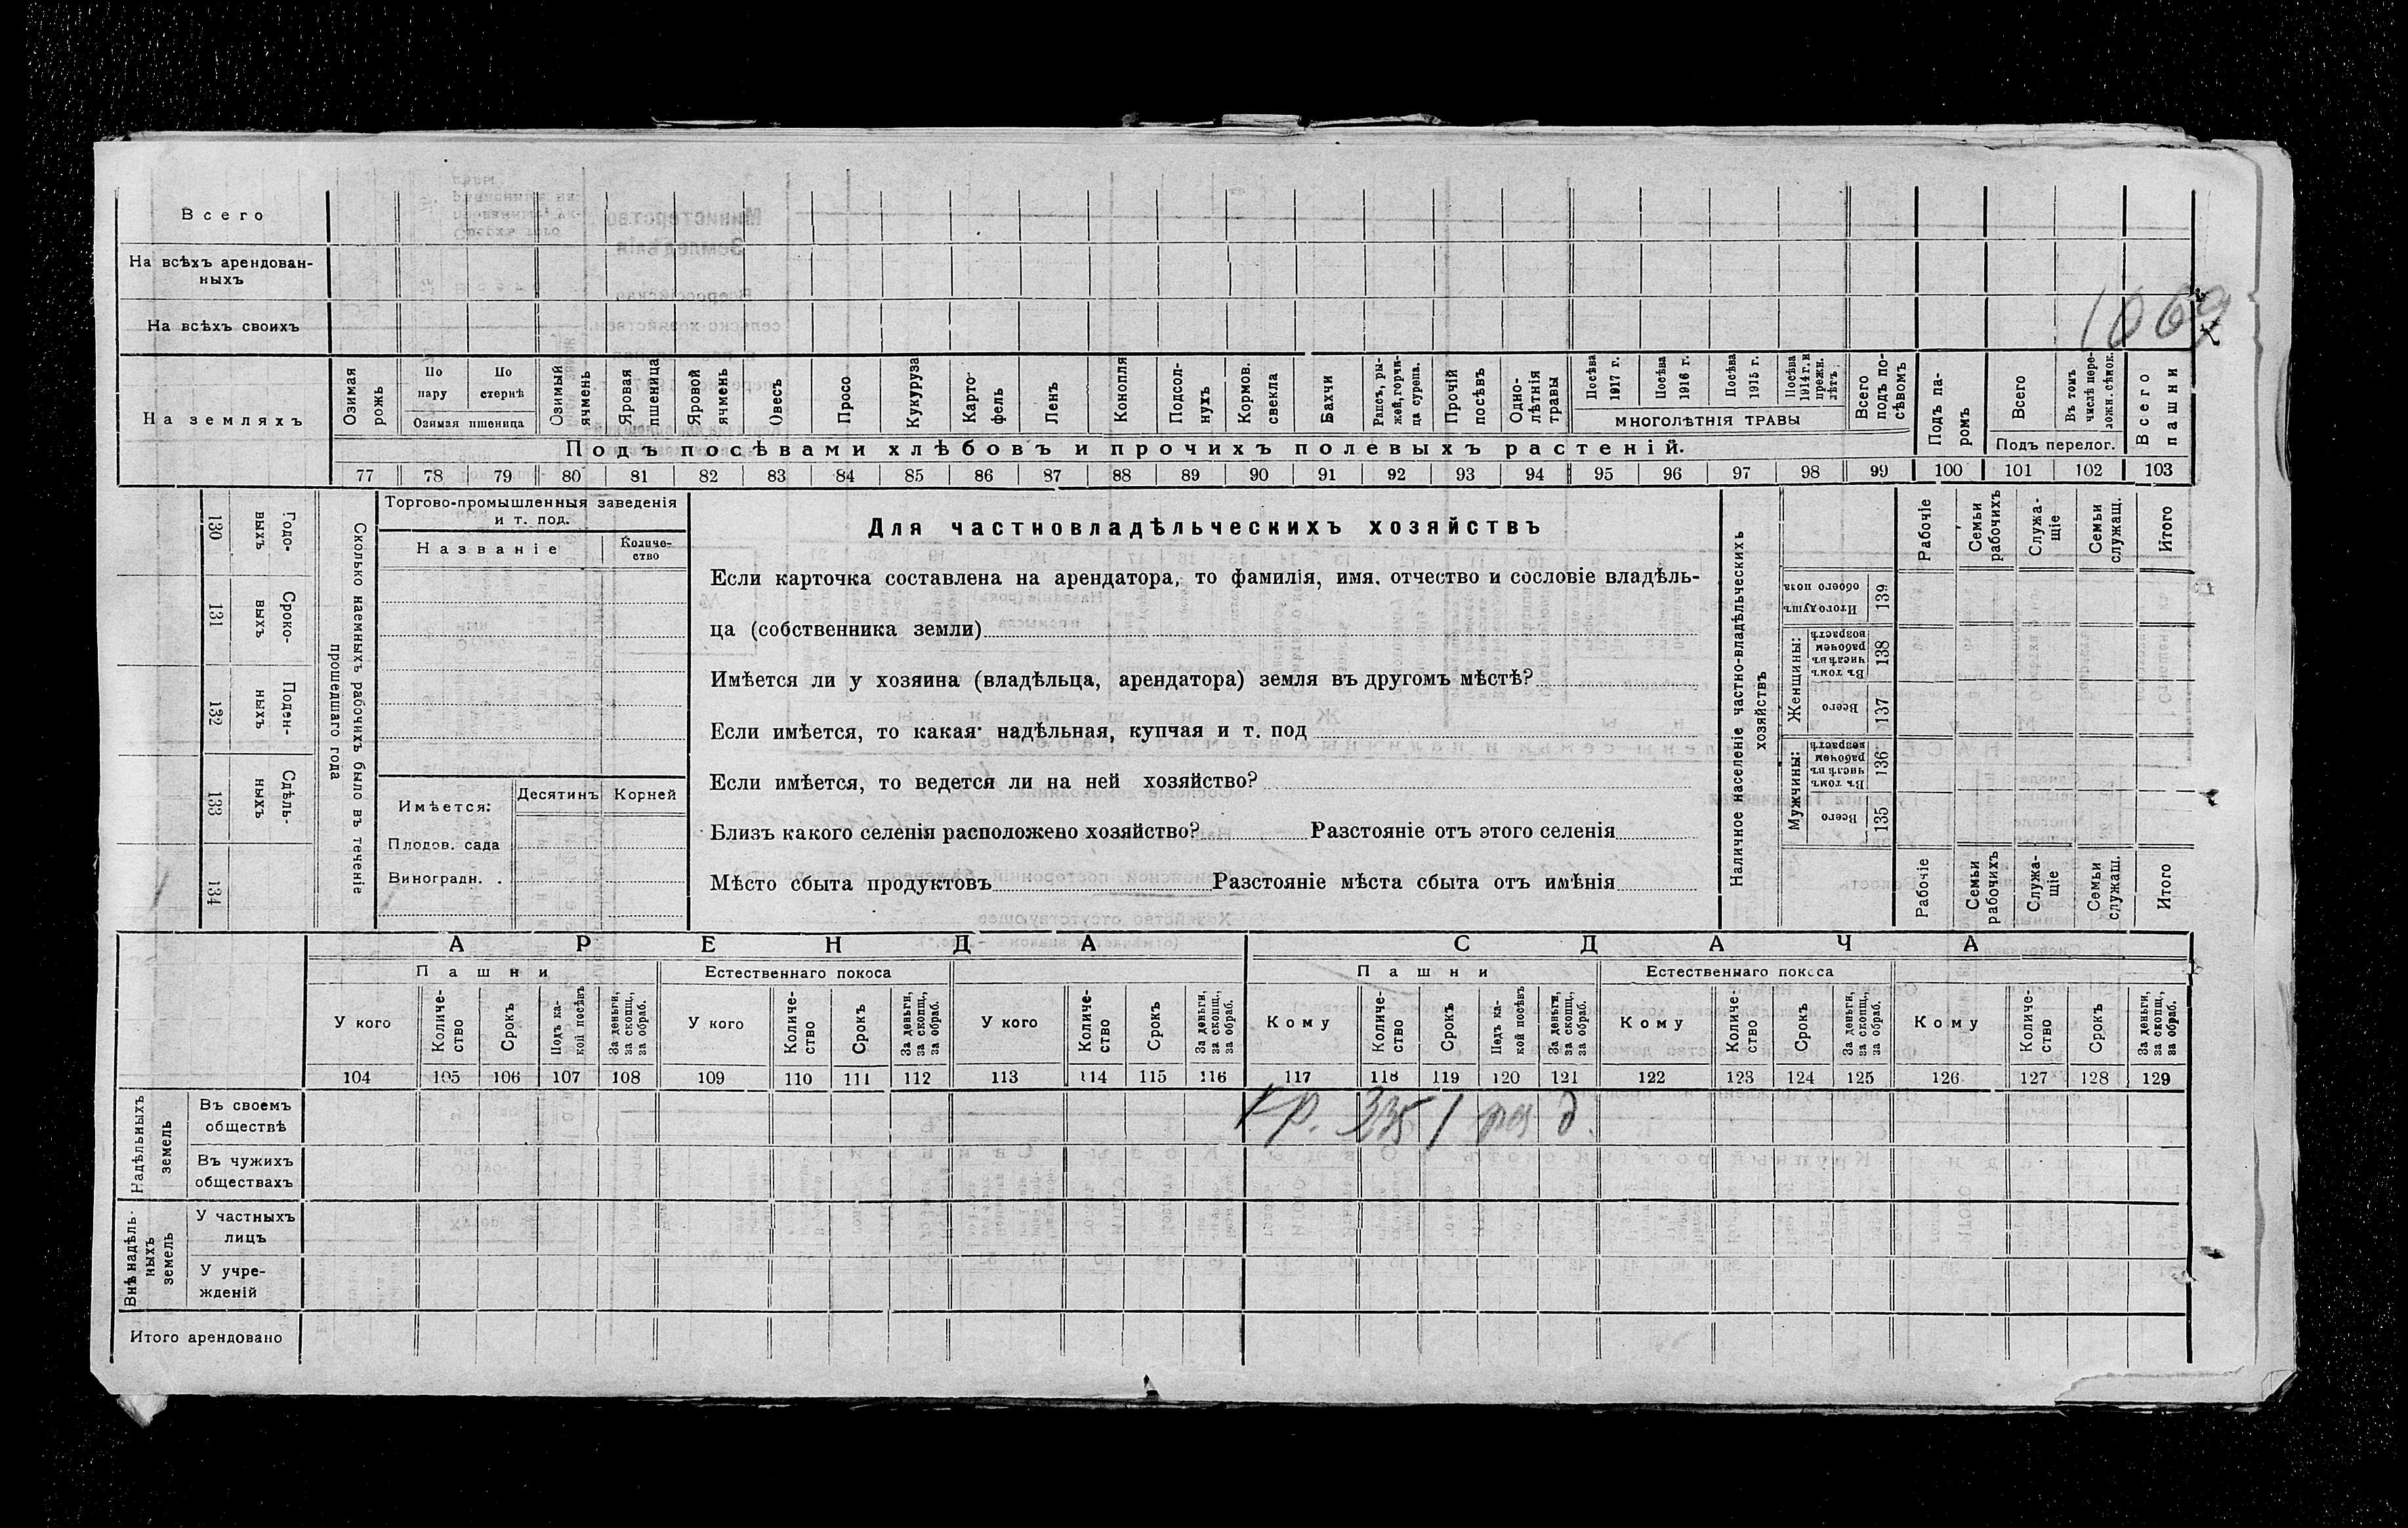 Всего
На всѣхъ арендован-
ныхъ
На всѣхъ своихъ
1069
На земляхъ
Озимая рожь
По пару
По стернѣ
Озимая пшеница
Озимый ячмень
Яровая пшеница
Яровой ячмень
Овесъ
Просо
Кукуруза
Карто-
фель
Ленъ
Конопля
Подсол-
нухъ
Кормов. свекла
Бахчи
Рапсъ, ры-
жей, горчи-
ца сурепа.
Прочій посѣвъ
Одно-
лѣтнія травы
Посѣва 1917 г.
Посѣва 1916 г.
Посѣва 1915 г.
Посѣва 1914 г. и прежн. лѣтъ
МНОГОЛѢТНІЯ ТРАВЫ
Всего подъ по-
сѣвомъ
Подъ па-
ромъ
Всего
Въ томъ числѣ пере-
ложн. сѣнок.
Подъ перелог.
Всего пашни
Подъ посѣвами хлѣбовъ и прочихъ полевыхъ растеній.
77 78 79 80 81 82 83 84 85 86 87 88 89 90 91 92 93 94 95 96 97 98 99 100 101 102 103
130 Годо-
выхъ
131 Сроко-
выхъ
132 Поден-
ныхъ
133 Сдѣль-
ныхъ
134
Сколько наемныхъ рабочихъ было въ теченіе
прошедшаго года
Торгово-промышленныя заведенія
и т. под.
Названіе
Количе-
ство
Имѣется:
Десятинъ
Корней
Плодов. сада
Виноградн.
Для частновладѣльческихъ хозяйствъ
Если карточка составлена на арендатора, то фамилія, имя. отчество и сословіе владѣль-
ца (собственника земли)
Имѣется ли у хозяина (владѣльца, арендатора) земля въ другомъ мѣстѣ?
Если имѣется, то какая надѣльная, купчая и т. под
Если имѣется, то ведется ли на ней хозяйство?
Близъ какого селенія расположено хозяйство? Разстояніе отъ этого селенія
Мѣсто сбыта продуктовъ Разстояніе мѣста сбыта отъ имѣнія
Наличное населеніе частно-владѣльческихъ
хозяйствъ
Рабочіе
Семьи рабочихъ
Служа-
щіе
Семьи служащ.
Итого
Итого душъ обоего пола 139
Женщины:
Въ томъ числѣ въ рабочемъ возрастѣ 138
Всего 137
Мужчины:
Въ томъ числѣ въ рабочемъ возрастѣ 136
Всего 135
Рабочіе
Семьи рабочихъ
Служа-
щіе
Семьи служащ.
Итого
АРЕНДА
СДАЧА
Пашни
Естественнаго покоса
Пашни
Естественнаго покоса
У кого
Количе-
ство
Срокъ
Подъ ка-
кой посѣвъ
За деньги, за скопщ., за обраб.
У кого
Количе-
ство
Срокъ
За деньги, за скопщ., за обраб.
У кого
Количе-
ство
Срокъ
За деньги, за скопщ., за обраб.
Кому
Количе-
ство
Срокъ
Подъ ка-
кой посѣвъ
За деньги, за скопщ., за обраб.
Кому
Количе-
ство
Срокъ
За деньги, за скопщ., за обраб.
Кому
Количе-
ство
Срокъ
За деньги, за скопщ., за обраб.
104 105 106 107 108 109 110 111 112 113 114 115 116 117 118 119 120 121 122 123 124 125 126 127 128 129
Надѣльныхъ
земель
Въ своемъ
обществѣ
Въ чужихъ
обществахъ
Внѣ надѣль-
ныхъ
земель
У частныхъ
лицъ
У учре-
жденій
Итого арендовано